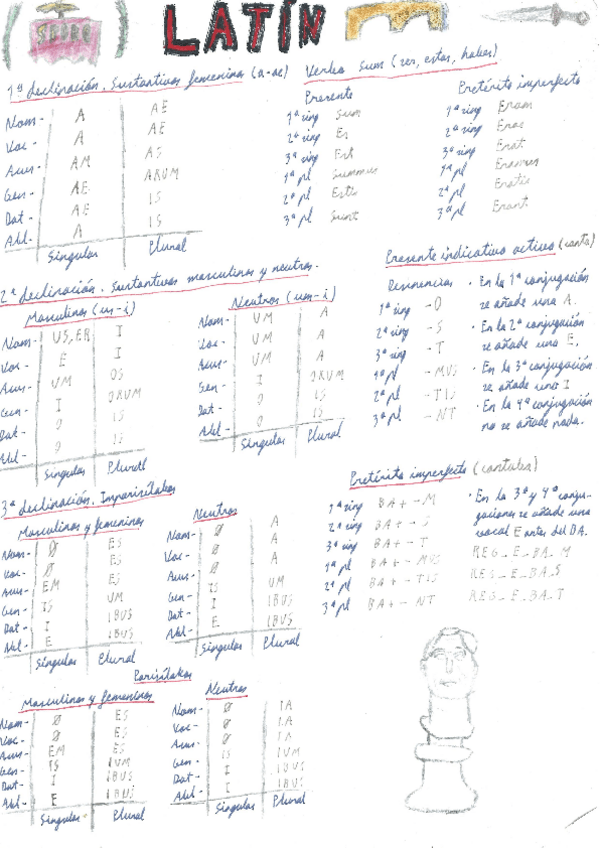 LATÍN
1ª declinación. Sustantivos femeninos (a-ae)
Nom- A AE
Voc- A AE
Acus- AM AS
Gen- AE ARUM
Dat- AE IS
Abl- A IS
Singular Plural
Verbo sum (ser, estar, haber)
Presente
1ª sing Sum
2ª sing Es
3ª sing Est
1ª pl Summus
2ª pl Estis
3ª pl Sunt
Pretérito imperfecto
1ª sing Eram
2ª sing Eras
3ª sing Erat
1ª pl Eramus
2ª pl Eratis
3ª pl Erant
2ª declinación. Sustantivos masculinos y neutros.
Masculinos (us-i)
Nom- US, ER I
Voc- E I
Acus- UM OS
Gen- I ORUM
Dat- O IS
Abl- O IS
Singular Plural
Neutros (um-i)
Nom- UM A
Voc- UM A
Acus- UM A
Gen- I ORUM
Dat- O IS
Abl- O IS
Singular Plural
Presente indicativo activo (canta)
Desinencias
1ª sing - O
2ª sing - S
3ª sing - T
1ª pl - MUS
2ª pl - TIS
3ª pl - NT
· En la 1ª conjugación
se añade una A.
· En la 2ª conjugación
se añade una E.
· En la 3ª conjugación
se añade una I
· En la 4ª conjugación
no se añade nada.
3ª declinación. Imparisílabos
Masculinos y femeninos
Nom- Ø ES
Voc- Ø ES
Acus- EM ES
Gen- IS UM
Dat- I IBUS
Abl- E IBUS
Singular Plural
Neutros
Nom- Ø A
Voc- Ø A
Acus- Ø A
Gen- IS UM
Dat- I IBUS
Abl- E IBUS
Singular Plural
Pretérito imperfecto (cantaba)
1ª sing BA+ - M
2ª sing BA+ - S
3ª sing BA+ - T
1ª pl BA+ - MUS
2ª pl BA+ - TIS
3ª pl BA+ - NT
· En la 3ª y 4ª conju-
gaciones se añade una
vocal E antes del BA.
REG_E_BA_M
REG_E_BA_S
REG_E_BA_T
Parisílabos
Masculinos y femeninos
Nom- Ø ES
Voc- Ø ES
Acus- EM ES
Gen- IS IUM
Dat- I IBUS
Abl- E IBUS
Singular Plural
Neutros
Nom- Ø IA
Voc- Ø IA
Acus- Ø IA
Gen- IS IUM
Dat- I IBUS
Abl- I IBUS
Singular Plural